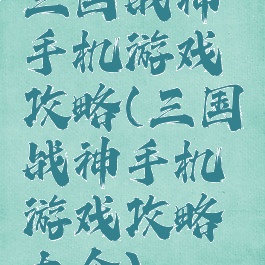 三国战神
手机游戏
攻略(三国
战神手机
游戏攻略
大全)